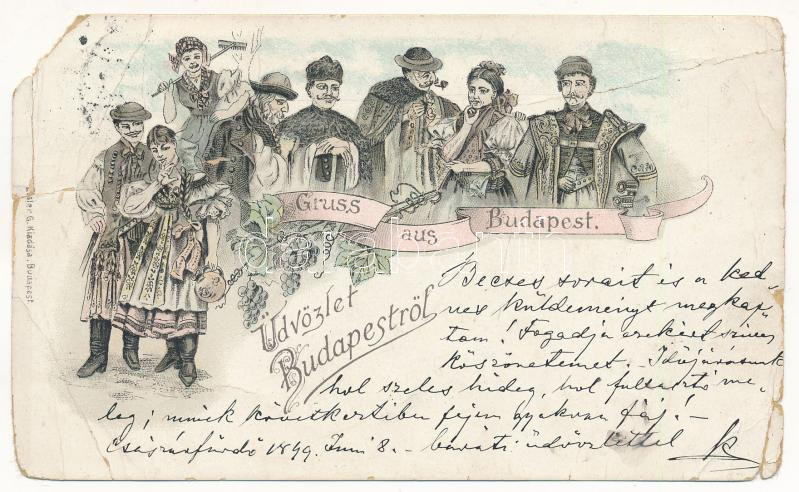 Gruss
aus
Budapest.
Üdvözlet
Budapestről
G. Kiadása, Budapest
Becses sorait és a ked-
ves küldeményt megkap-
tam! Fogadja ezekért szives
köszönetemet. Időjárásunk
hol szeles hideg, hol fullasztó me-
leg; minek következtiben fejem gyakran fáj! -
Császárfürdő 1899. Juni 8. - baráti üdvözlettel